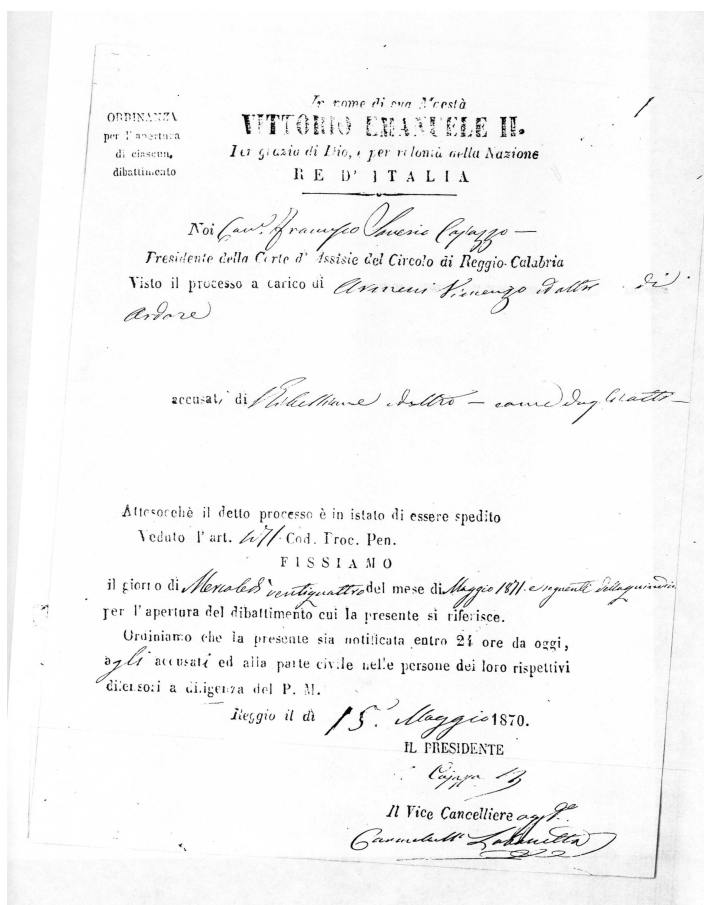 1
ORDINANZA
per l'apertura
di ciascun,
dibattimento
In nome di sua Maestà
VITTORIO EMANUELE II.
Per grazia di Dio, e per volontà della Nazione
RE D'ITALIA
Noi Cav. Francesco Saverio
Presidente della Corte d'Assisie del Circolo di Reggio-Calabria
Visto il processo a carico di Vincenzo ed altri di
Ardore
accusati di Ribellione ed altro — come dagli atti —
Attesocchè il detto processo è in istato di essere spedito
Veduto l'art. 471 Cod. Proc. Pen.
FISSIAMO
il giorno di Mercoledì ventiquattro del mese di Maggio 1871 e seguenti della quindicina
per l'apertura del dibattimento cui la presente si riferisce.
Ordiniamo che la presente sia notificata entro 24 ore da oggi,
agli accusati ed alla parte civile nelle persone dei loro rispettivi
difensori a diligenza del P. M.
Reggio il dì 15 Maggio 1870.
IL PRESIDENTE
Il Vice Cancelliere agg.